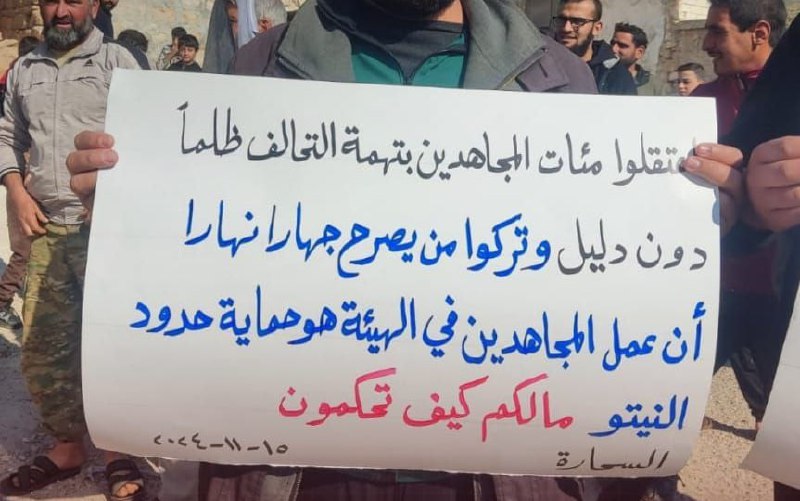 اعتقلوا مئات المجاهدين بتهمة التحالف ظلماً
دون دليل وتركوا من يصرح جهارا نهارا
أن عمل المجاهدين في الهيئة هو حماية حدود
النيتو مالكم كيف تحكمون
السحارة ١٥-١١-٢٠٢٤